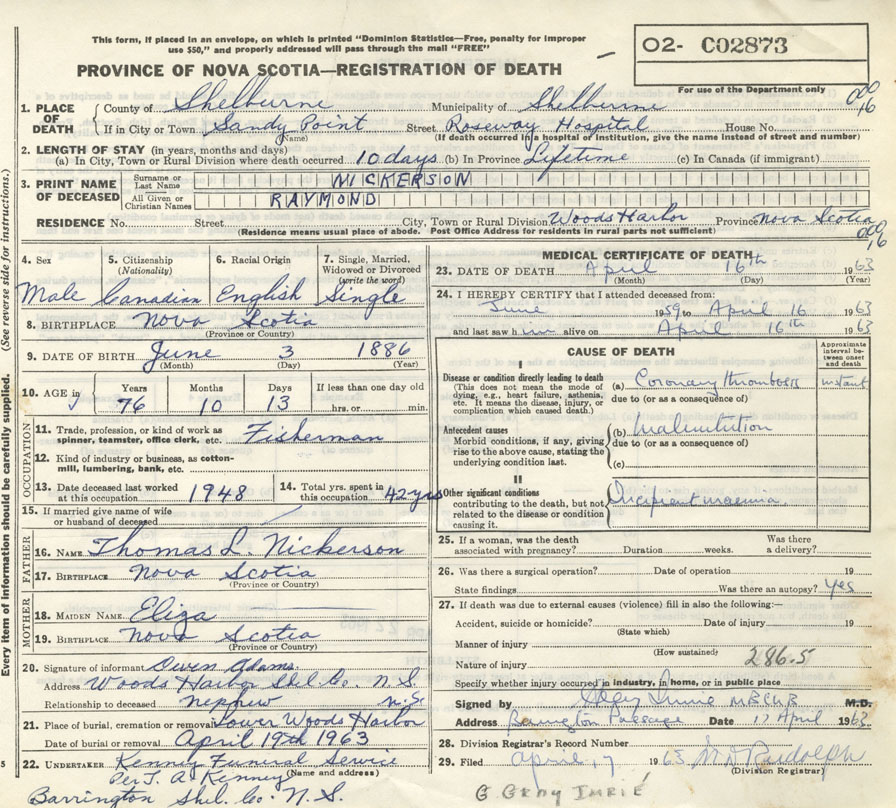 This form, if placed in an envelope, on which is printed "Dominion Statistics—Free, penalty for improper
use $50," and properly addressed will pass through the mail "FREE"
02- C02873
For use of the Department only
PROVINCE OF NOVA SCOTIA—REGISTRATION OF DEATH
1. PLACE OF DEATH County of Shelburne Municipality of Shelburne
If in City or Town Sandy Point Street Roseway Hospital House No.
(Name) (If death occurred in a hospital or institution, give the name instead of street and number)
2. LENGTH OF STAY (in years, months and days)
(a) In City, Town or Rural Division where death occurred 10 days (b) In Province Lifetime (c) In Canada (if immigrant)
3. PRINT NAME OF DECEASED Surname or Last Name NICKERSON
All Given or Christian Names RAYMOND
RESIDENCE No. Street City, Town or Rural Division Woods Harbor Province Nova Scotia
(Residence means usual place of abode. Post Office Address for residents in rural parts not sufficient)
4. Sex 5. Citizenship (Nationality) 6. Racial Origin 7. Single, Married, Widowed or Divorced (write the word)
Male Canadian English Single
8. BIRTHPLACE Nova Scotia
(Province or Country)
9. DATE OF BIRTH June 3 1886
(Month) (Day) (Year)
10. AGE in Years Months Days If less than one day old
76 10 13 hrs. or min.
OCCUPATION
11. Trade, profession, or kind of work as spinner, teamster, office clerk, etc. Fisherman
12. Kind of industry or business, as cotton-mill, lumbering, bank, etc.
13. Date deceased last worked at this occupation 1948 14. Total yrs. spent in this occupation 42 yrs
15. If married give name of wife or husband of deceased
FATHER
16. NAME Thomas L. Nickerson
17. BIRTHPLACE Nova Scotia
(Province or Country)
MOTHER
18. MAIDEN NAME Eliza
19. BIRTHPLACE Nova Scotia
(Province or Country)
20. Signature of informant Owen Adams
Address Woods Harbor Shel. Co. N.S.
Relationship to deceased nephew N.S.
21. Place of burial, cremation or removal Lower Woods Harbor
Date of burial or removal April 19th 1963
22. UNDERTAKER Kenney Funeral Service
(Name and address)
Per J. A Kenney
Barrington Shel. Co. N.S.
MEDICAL CERTIFICATE OF DEATH
23. DATE OF DEATH April 16th 1963
(Month) (Day) (Year)
24. I HEREBY CERTIFY that I attended deceased from:
June 1959 to April 16 1963
and last saw him alive on April 16th 1963
CAUSE OF DEATH
Approximate interval between onset and death
I
Disease or condition directly leading to death (a) Coronary thrombosis instant
This does not mean the mode of dying, e.g., heart failure, asthenia, etc. It means the disease, injury, or complication which caused death.) due to (or as a consequence of)
Antecedent causes (b) Malnutrition
Morbid conditions, if any, giving rise to the above cause, stating the underlying condition last. due to (or as a consequence of)
(c)
II
Other significant conditions contributing to the death, but not related to the disease or condition causing it. Incipient uraemia
25. If a woman, was the death associated with pregnancy? Duration weeks. Was there a delivery?
26. Was there a surgical operation? Date of operation 19
State findings Was there an autopsy? Yes
27. If death was due to external causes (violence) fill in also the following:—
Accident, suicide or homicide? Date of injury 19
(State which)
Manner of injury
(How sustained)
Nature of injury 286.5
Specify whether injury occurred in industry, in home, or in public place
Signed by M.D.
Address Barrington Passage Date 17 April 1963
28. Division Registrar's Record Number
29. Filed April 17 1963
(Division Registrar)
Every item of information should be carefully supplied. (See reverse side for instructions.)